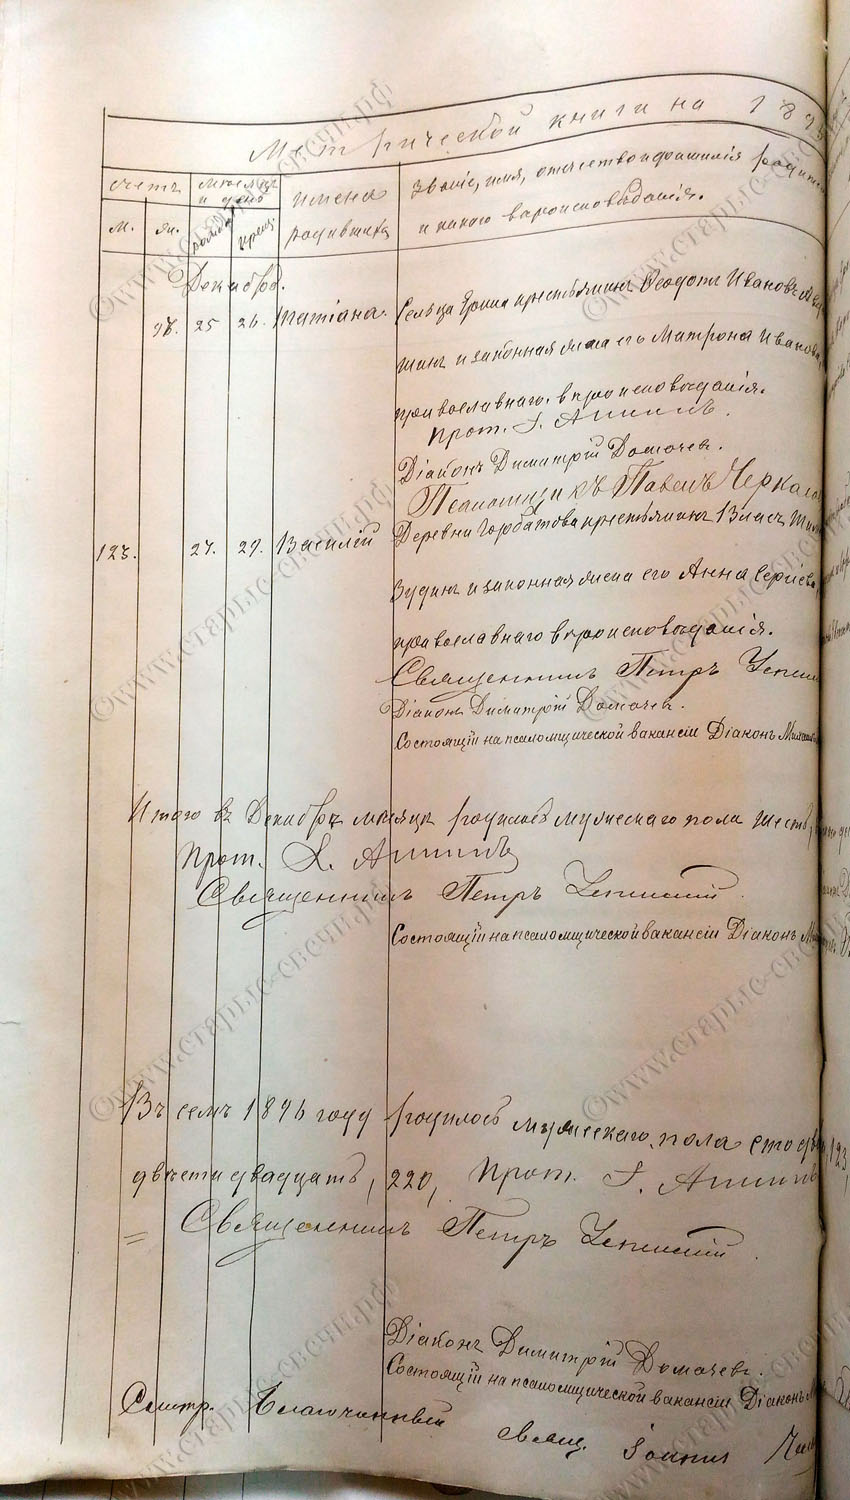 Метрической книги на 189
счетъ
месяцъ и день
имена родившихся
Званіе, имя, отчество и фамилія родител
и какого вероисповѣданія.
м.
ж.
рожден.
крещ.
Декабрь.
97. 25 26. Татіана.
крестьянинъ Ѳеодотъ Ивановъ
и законная жена его Матрона Иванова,
православнаго вѣроисповѣданія.
Прот. І.
Діаконъ Димитрій Домачев.
Псаломщикъ Павелъ Черкасо
123. 27. 29. Василій
Деревни Горбатова крестьянинъ Власъ
Зудинъ и законная жена его Анна Сергіева,
православнаго вѣроисповѣданія.
Священникъ Петръ Успенск
Діаконъ Димитрій Домачев.
Состоящій на псаломщической вакансіи Діаконъ
Итого въ Декабрѣ месяцѣ родилось мужескаго пола шесть,
Прот.
Священникъ Петръ Успенскій
Состоящій на псаломщической вакансіи Діаконъ
Въ семъ 1896 году родилось мужескаго пола сто
двѣсти двадцать, 220, Прот. І.
Священникъ Петръ Успенскій
Діаконъ Димитрій Домачевъ.
Состоящій на псаломщической вакансіи Діаконъ
Смотр. Благочинный
Свящ. Іоаннъ
©www.старые-свечи.рф